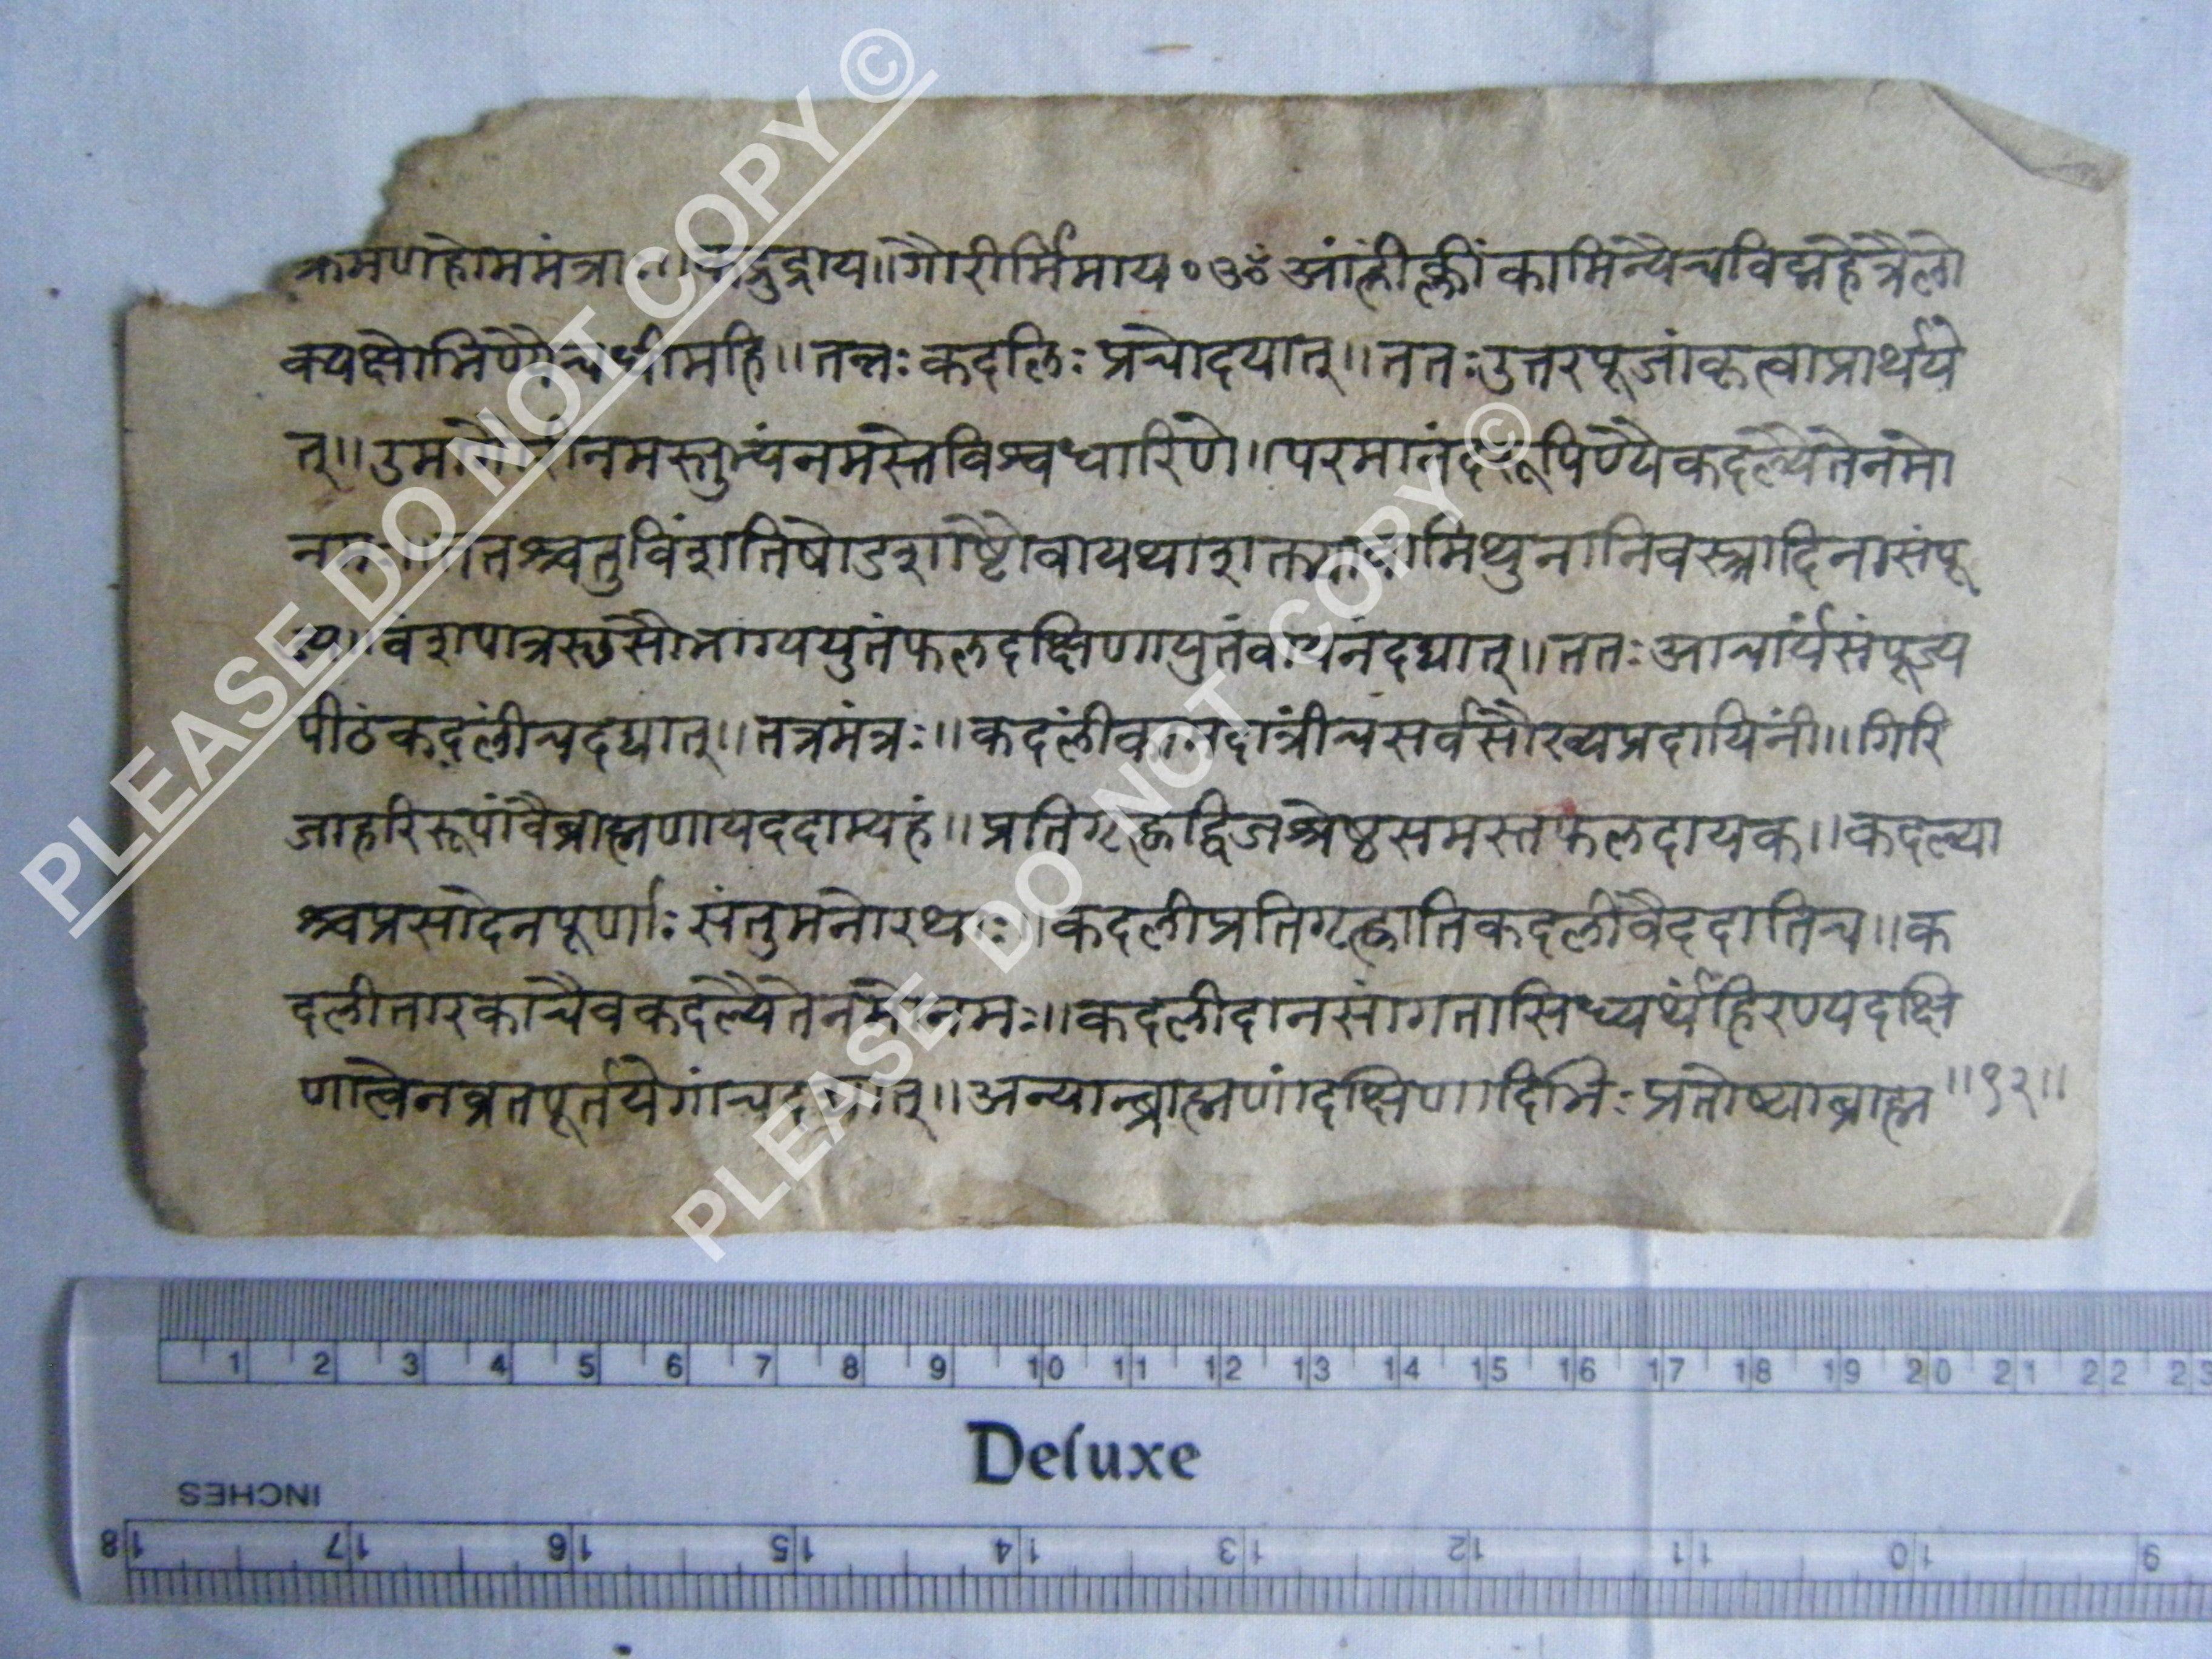 क्रमणहोममंत्राः॥कद्रुद्राय॥गौरीर्मिमाय०ॐआंह्रींक्लींकामिन्यैचविद्महेत्रैलो
क्यक्षोभिण्यैचधीमहि॥तन्नःकदलिःप्रचोदयात्॥ततःउत्तरपूजांकृत्वाप्रार्थये
त्॥ नमस्तुभ्यंनमस्तेविश्वधारिणे॥परमानंदरूपिण्यैकदल्यैतेनमो
ततश्चतुर्विंशतिषोडशाष्टौवायथाशक्त्या मिथुनानिवस्त्रादिनासंपू
ज्य॥वंशपात्रस्छसौभाग्ययुतंफलदक्षिणायुतंवायनंदद्यात्॥ततःआचार्यंसंपूज्य
पीठंकदलींचदद्यात्॥तत्रमंत्रः॥कदलींकामदात्रींचसर्वसौख्यप्रदायिनीं॥गिरि
जाहरिरूपांवैब्राह्मणायददाम्यहं॥प्रतिगृह्णद्विजश्रेष्ठसमस्तफलदायक॥कदल्या
श्चप्रसादेनपूर्णाःसंतुमनोरथाः॥कदलीप्रतिगृह्णातिकदलीवैददातिच॥क
दलीतारकाचैवकदल्यैतेनमोनमः॥कदलीदानसांगतासिध्यर्थंहिरण्यदक्षि
णात्वेनव्रतपूर्तयेगांचदद्यात्॥अन्यान्ब्राह्मणांदक्षिणादिभिःप्रतोष्याब्राह्म ॥१२॥
PLEASE DO NOT COPY ©
PLEASE DO NOT COPY ©
1 2 3 4 5 6 7 8 9 10 11 12 13 14 15 16 17 18 19 20 21 22 23
Deluxe
INCHES
18 17 16 15 14 13 12 11 10 9